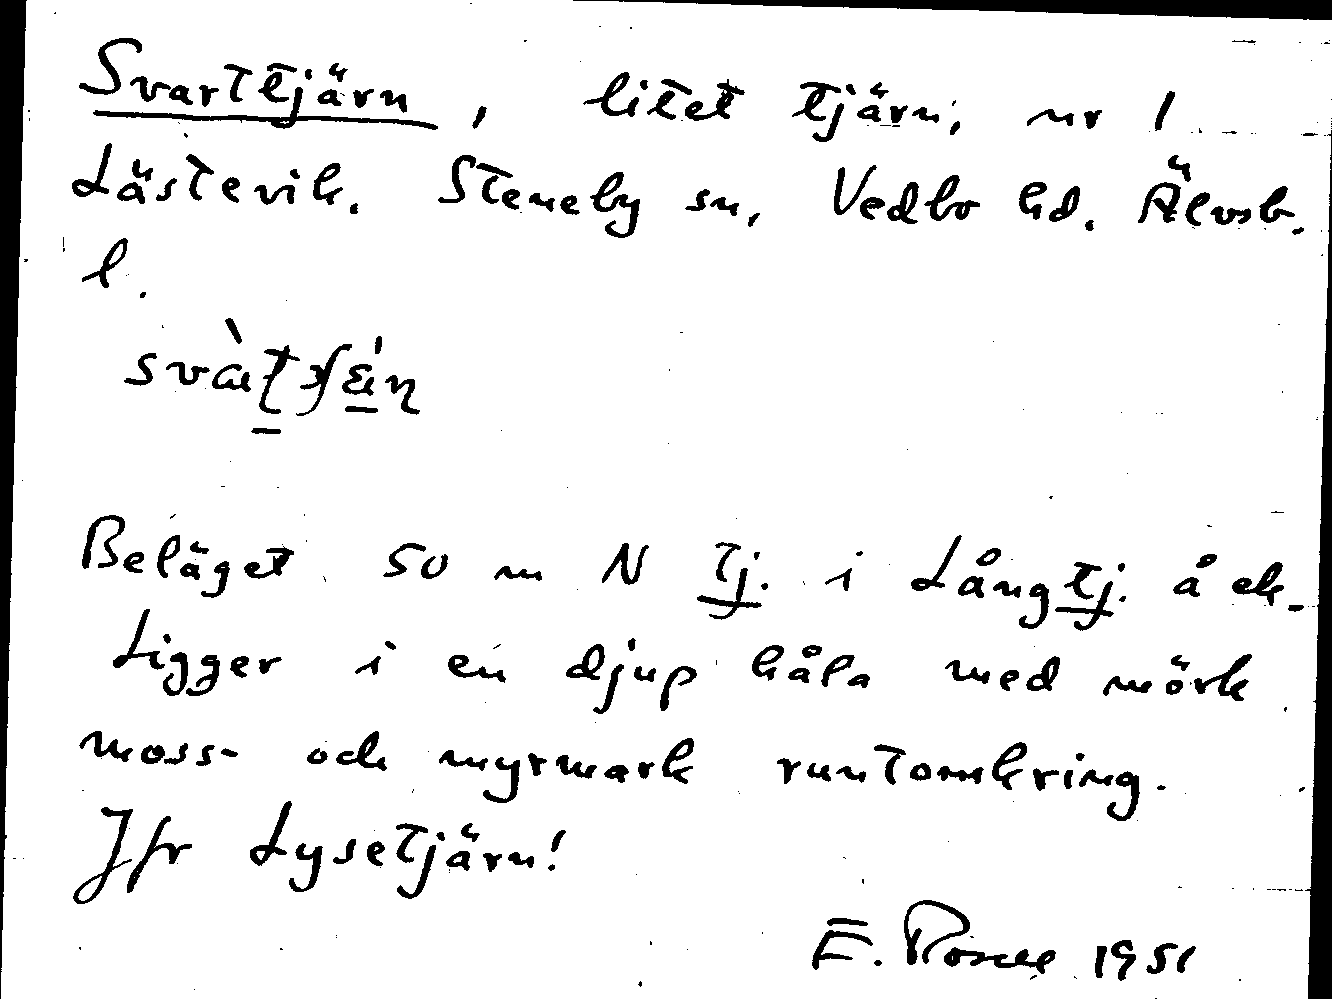 Svarttjärn, litet tjärn, nr 1
Lästevik. Steneby sn, Vedbo hd. Älvsb.
l.
Beläget 50 m N Tj. i Långtj. å ek.
Ligger i en djup håla med mörk
moss- och myrmark runtomkring.
Jfr Lysetjärn!
E. 1951